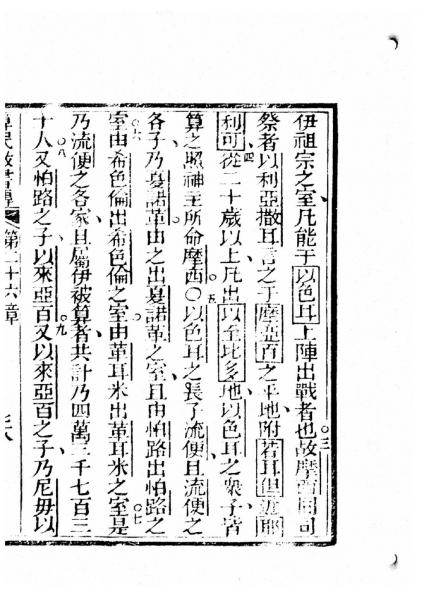 伊祖宗之室凡能于以色耳上陣出戰者也○三故摩西同司
祭者以利亞撒耳言之于摩亞百之平地附若耳但近耶
利可、四從二十歲以上凡出以至比多地以色耳之衆子皆
算之照神主所命摩西○五以色耳之長子流便且流便之
各子乃夏諾革由之出夏諾革之室且由怕路出怕路之
室○六由希色倫出希色倫之室由革耳米出革耳米之室○七是
乃流便之各家且屬伊被算者共計乃四萬三千七百三
十人○八又怕路之子以來亞百○九又以來亞百之子乃尼毋以
第二十六章